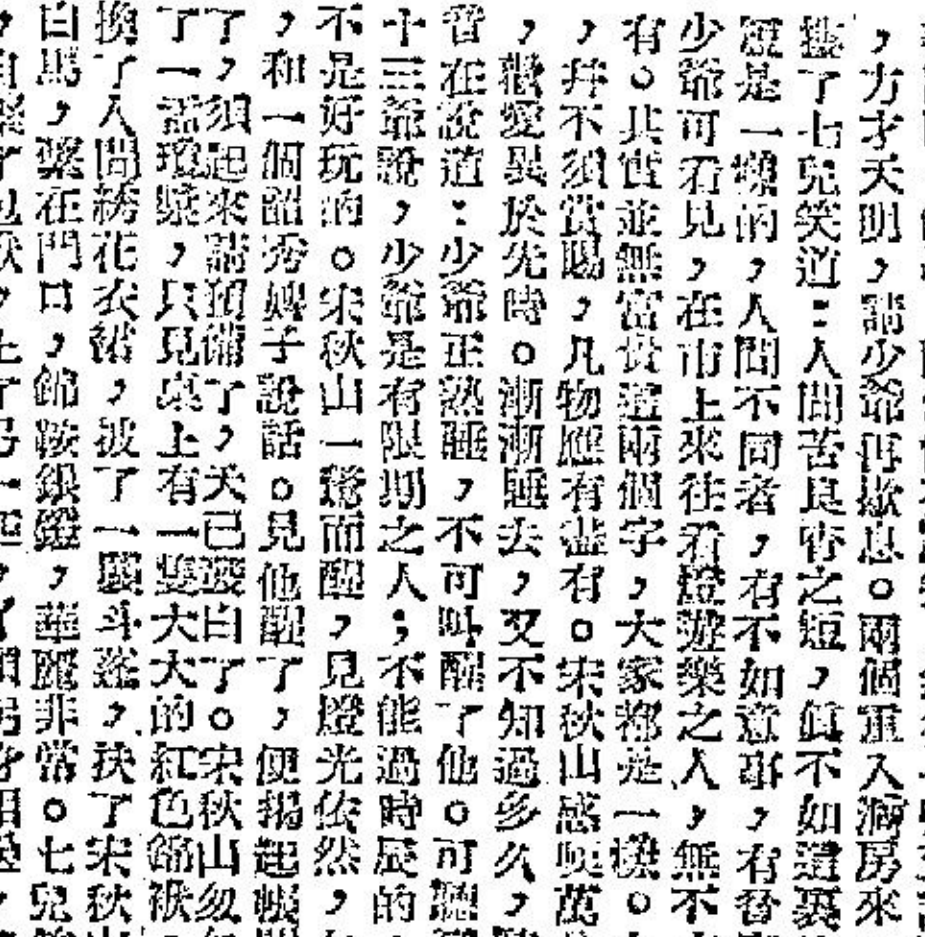 ，力才天明，請少爺再歇息。兩個重入洞房來
了七兒笑道：人間苦良宵之短，眞不如這裏
是一懶的，人間不同者，有不如意事，有
少爺可看見，在市上來往看燈遊樂之人，無不
有。其實並無富貴這兩個字，大家都是一樣。
，幷不須賞賜，凡物應有盡有。宋秋山感嘆萬
，歡愛異於先時。漸漸睡去，又不知過多久，
在說道：少爺正熟睡，不可叫醒了他。可聽
十三爺說，少爺是有限期之人；不能過時辰的
不是好玩的。宋秋山一驚而醒，見燈光依然，
，和一個韶秀婢子說話。見他醒了，便揭起帳
了，須起來請預備了，天已要白了。宋秋山忽
了一盂瓊漿，只見桌上有一雙大大的紅色錦袱
換了人間綉花衣裙，被了一斗篷，挾了宋秋
白馬，繫在門口，錦鞍銀鐙，華麗非常。七兒